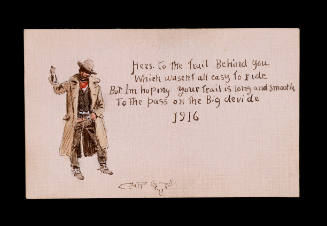 Hers. to the Trail Behind you
Which wasent all easy to ride
But Im hoping your trail is long and smooth
To the pass on the Big devide
1916